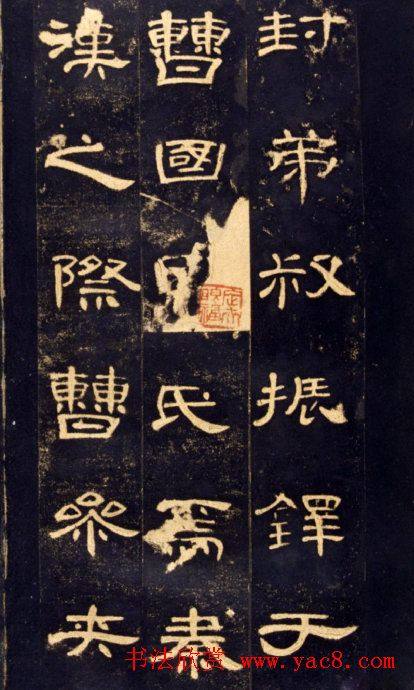 封弟叔振鐸于
曹國因氏焉秦
漢之際曹參夾
书法欣赏 www.yac8.com